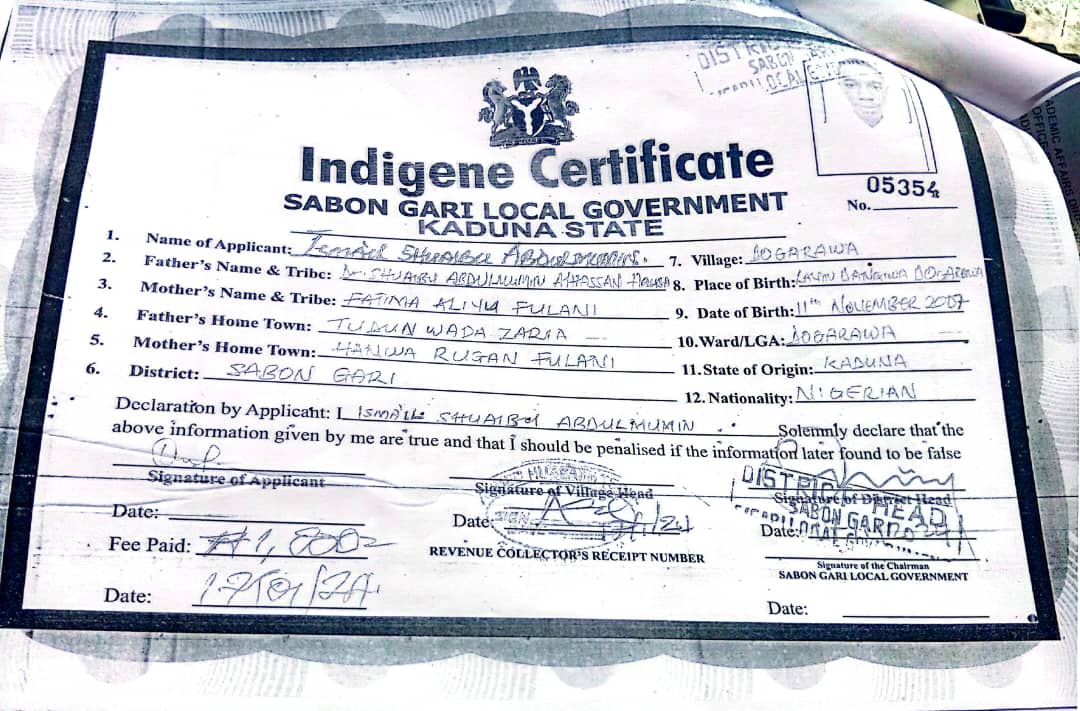 DISTRICT
SABON GARI
LOCAL GOVT
Indigene Certificate
SABON GARI LOCAL GOVERNMENT
KADUNA STATE
05354
No.
1. Name of Applicant: Ismail SHUAIBU ABDULMUMIN.
2. Father's Name & Tribe: Dr. SHUAIBU ABDULMUMIN ALHASSAN HAUSA
3. Mother's Name & Tribe: FATIMA ALIYU FULANI
4. Father's Home Town: TUDUN WADA ZARIA
5. Mother's Home Town: HANWA RUGAN FULANI
6. District: SABON GARI
7. Village: DOGARAWA
8. Place of Birth: DOGARAWA
9. Date of Birth: 11th NOVEMBER 2007
10. Ward/LGA: DOGARAWA
11. State of Origin: KADUNA
12. Nationality: NIGERIAN
Declaration by Applicant: I ISMAIL SHUAIBU ABDULMUMIN Solemnly declare that the
above information given by me are true and that I should be penalised if the information later found to be false
Signature of Applicant
Date:
Fee Paid: ₦1,800=
Date: 17/01/24
Signature of Village Head
Date:
SIGN
REVENUE COLLECTOR'S RECEIPT NUMBER
DISTRICT HEAD
Signature of District Head
SABON GARI
Date:
Signature of the Chairman
SABON GARI LOCAL GOVERNMENT
Date:
ADEMIC AFFAIRS
OFFICE